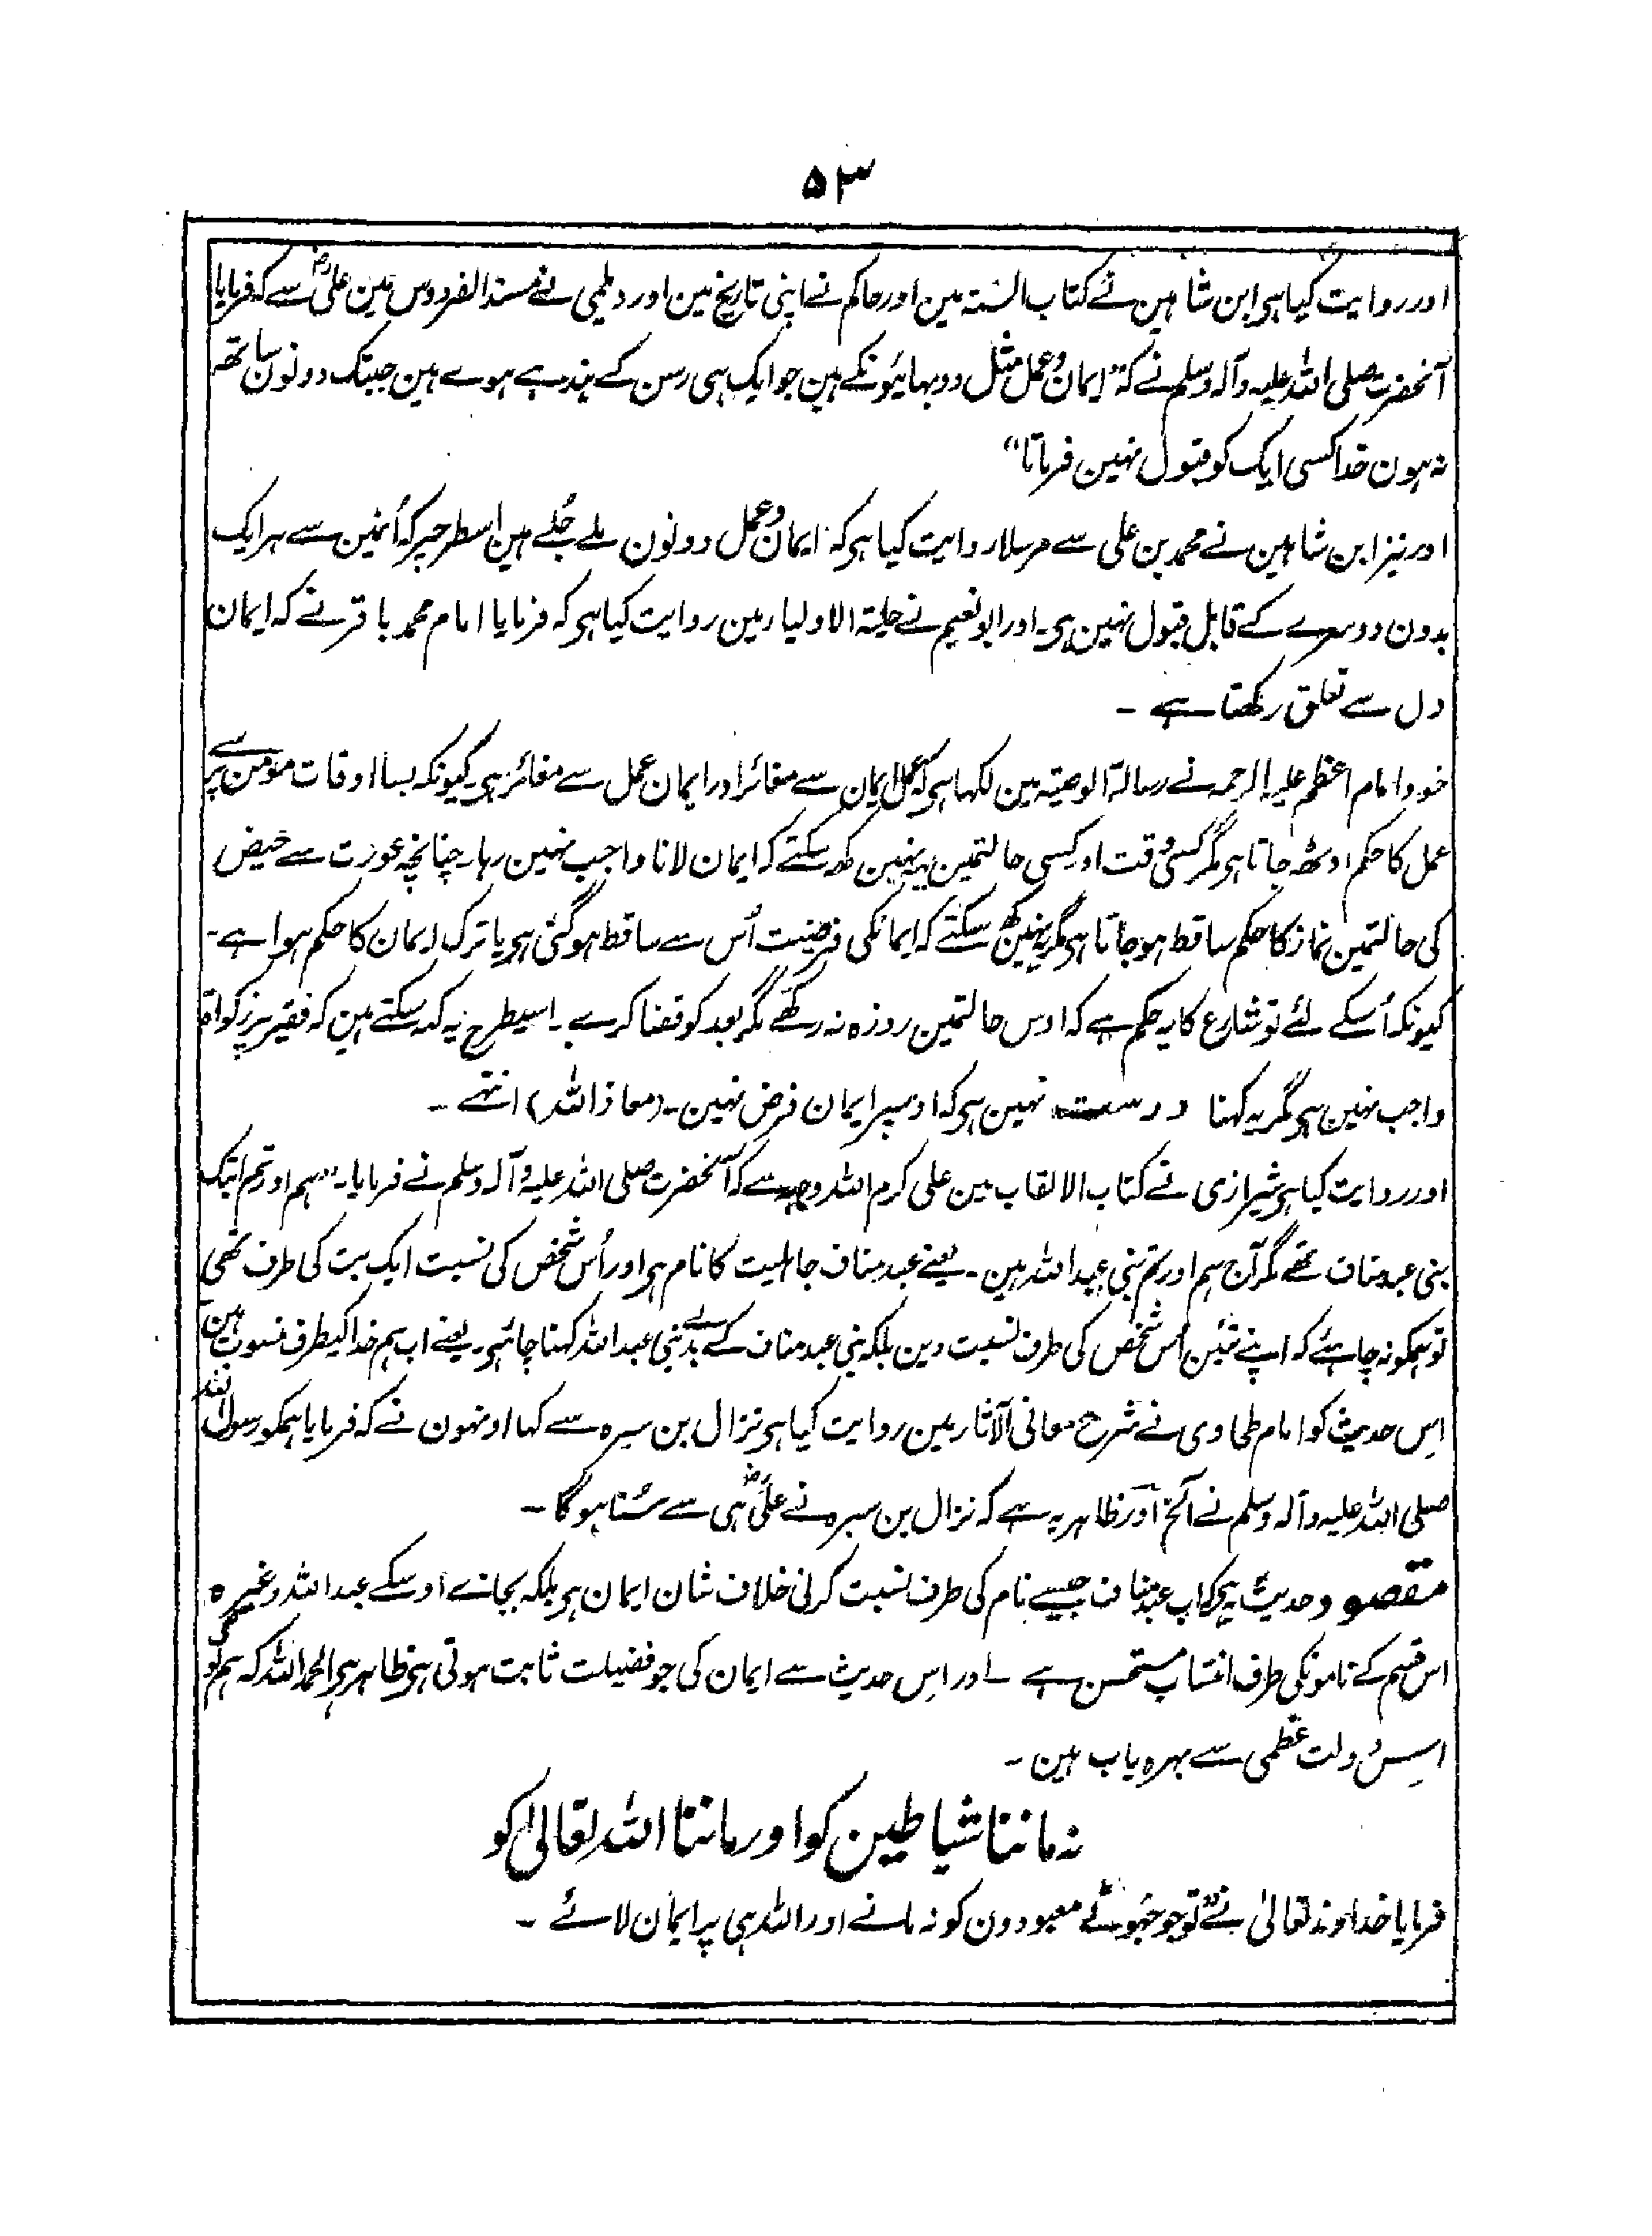 ۵۳
اور روایت کیا ہی ابن شاہین نے کتاب السنۃ مین اور حاکم نے اپنی تاریخ مین اور دیلمی نے مسند الفردوس مین علیؓ سے کہ فرمایا
آنحضرت صلی اللہ علیہ وآلہ وسلم نے کہ "ایمان و عمل مثل دو بہائیونکے ہین جو ایک ہی رسن کے بندہے ہوے ہین جبتک دونون ساتھ
نہ ہون خدا کسی ایک کو قبول نہین فرماتا"
اور نیز ابن شاہین نے محمد بن علی سے مرسلا روایت کیا ہی کہ ایمان و عمل دونون ملے جُلے ہین اسطرحپر کہ اُنمین سے ہر ایک
بدون دوسرے کے قابل قبول نہین ہی۔ اور ابو نعیم نے حلیۃ الاولیا رمین روایت کیا ہی کہ فرمایا امام محمد باقر نے کہ ایمان
دل سے تعلق رکھتا ہے ۔
خود امام اعظم علیہ الرحمہ نے رسالۃ الوصیۃ مین لکھا ہی کہ عمل ایمان سے مغائر اور ایمان عمل سے مغائر ہی۔ کیونکہ بسا اوقات مومن پر سے
عمل کا حکم اوٹھ جاتا ہی مگر کسی وقت اور کسی حالتمین یہ نہین کہہ سکتے کہ ایمان لانا واجب نہین رہا۔ چنانچہ عورت سے حیض
کی حالتمین نماز کا حکم ساقط ہو جاتا ہی مگر یہ نہین کہہ سکتے کہ ایمانکی فرضیت اُس سے ساقط ہو گئی ہی یا ترک ایمان کا حکم ہوا ہے۔
کیونکہ اُسکے لئے تو شارع کا یہ حکم ہے کہ اوس حالتمین روزہ نہ رکھے مگر بعد کو قضا کرے ۔ اسیطرح یہ کہہ سکتے ہین کہ فقیر پر زکواۃ
واجب نہین ہی مگر یہ کہنا درست نہین ہی کہ اوسپر ایمان فرض نہین۔ (معاذ اللہ) انتہے ۔
اور روایت کیا ہی شیرازی نے کتاب الالقاب مین علی کرم اللہ وجہہ سے کہ آنحضرت صلی اللہ علیہ وآلہ وسلم نے فرمایا۔ "ہم اور تم ابتک
بنی عبد مناف تھے مگر آج ہم اور تم بنی عبد اللہ ہین۔ یعنے عبد مناف جاہلیت کا نام ہی اور اُس شخص کی نسبت ایک بت کی طرف تھی
تو ہمکو نہ چاہئے کہ اپنے تئین اُس شخص کی طرف نسبت دین بلکہ بنی عبد مناف کے بدلے بنی عبد اللہ کہنا چاہئی۔ یعنے اب ہم خدا کیطرف منسوب ہین
اِس حدیث کو امام طحاوی نے شرح معانی الآثار مین روایت کیا ہی نزال بن سبرہ سے کہا اونہون نے کہ فرمایا ہمکو رسول اللہ
صلی اللہ علیہ وآلہ وسلم نے الخ اور ظاہر یہ ہے کہ نزال بن سبرہ نے علیؓ ہی سے سُنا ہوگا ۔
مقصود حدیث یہ ہی کہ اب عبد مناف جیسے نام کی طرف نسبت کرنی خلاف شان ایمان ہی بلکہ بجائے اوسکے عبد اللہ وغیرہ
اس قسم کے نامونکی طرف انتساب مستحسن ہے ۔ اور اِس حدیث سے ایمان کی جو فضیلت ثابت ہوتی ہی ظاہر ہی الحمد للہ کہ ہم لوگ
اِس دولت عظمی سے بہرہ یاب ہین ۔
نہ ماننا شیاطین کو اور ماننا اللہ تعالیٰ کو
فرمایا خداوند تعالیٰ نے "تو جو جہوٹے معبودون کو نہ مانے اور اللہ ہی پر ایمان لائے ۔